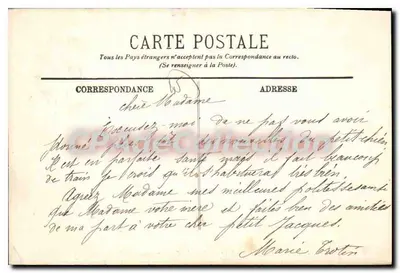 CARTE POSTALE
Tous les Pays étrangers n'acceptent pas la Correspondance au recto.
(Se renseigner à la Poste).
CORRESPONDANCE
ADRESSE
chère Madame
Excusez-moi de ne pas vous avoir
donné des nouvelles du petit chien
Il est en parfaite santé mais il fait beaucoup
de train je crois qu'il s'habituera très bien.
Agréez Madame mes meilleures politesses ainsi
que Madame votre mère et faites bien des amitiés
de ma part à votre cher petit Jacques.
Marie Trotin